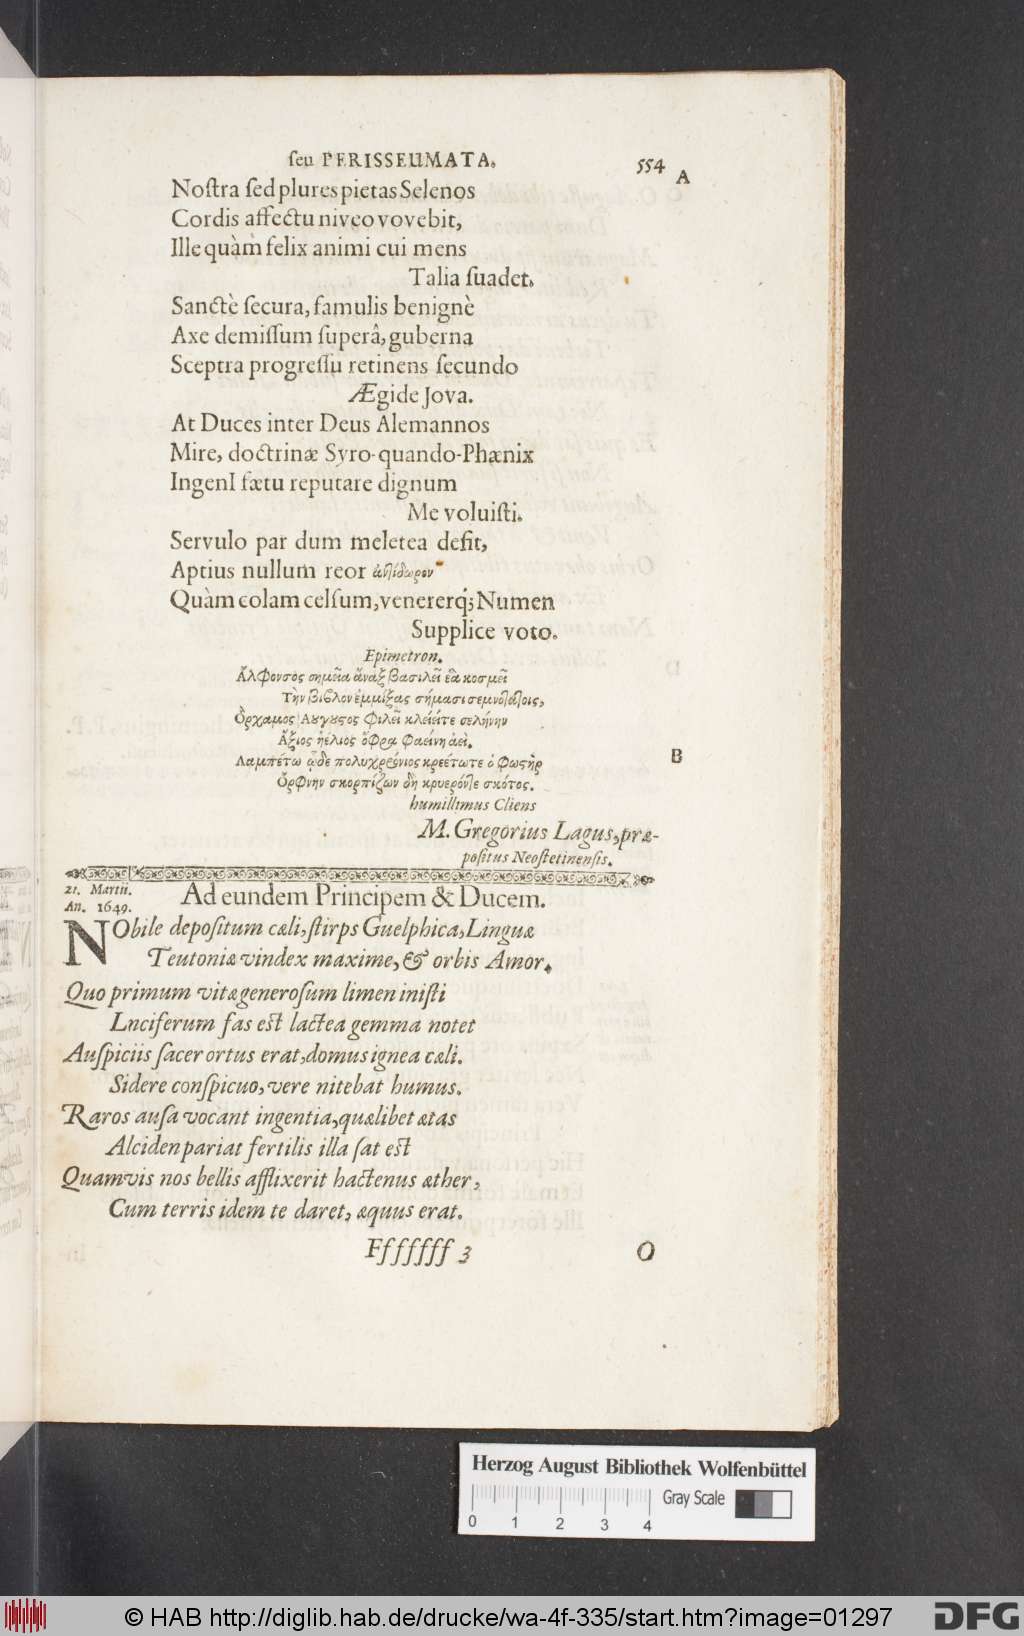 seu PERISSEUMATA. 554
A
Nostra sed plures pietas Selenos
Cordis affectu niveo vovebit,
Ille quàm felix animi cui mens
Talia suadet.
Sanctè secura, famulis benignè
Axe demissum superâ, guberna
Sceptra progressu retinens secundo
Ægide Jova.
At Duces inter Deus Alemannos
Mire, doctrinæ Syro-quando-Phænix
IngenI fætu reputare dignum
Me voluisti.
Servulo par dum meletea desit,
Aptius nullum reor ἀντίδωρον
Quàm colam celsum, venererq; Numen
Supplice voto.
Epimetron.
Ἄλφονσος σημεῖα ἄναξ βασιλεῖ ἐὰ κοσμεῖ
Τὴν βίβλον ἐμμίξας σήμασι σεμνοτάτοις,
Ὄρχαμος Αυγυστος φιλεῖ κλείειτε σελήνην
Ἄξιος ἠέλιος ὄφρα φαείνη ἀεὶ.
Λαμπέτω ᾧδε πολυχρόνιος κρεέτωτε ὁ φωστὴρ
B
Ὄρφνην σκορπίζων δὴ κρυερόντε σκότος.
humillimus Cliens
M. Gregorius Lagus, præ-
positus Neostetinensis.
21. Martii.
An. 1649.
Ad eundem Principem & Ducem.
NObile depositum cæli, stirps Guelphica, Linguæ
Teutoniæ vindex maxime, & orbis Amor.
Quo primum vitæ generosum limen inisti
Lnciferum fas est lactea gemma notet
Auspiciis sacer ortus erat, domus ignea cæli.
Sidere conspicuo, vere nitebat humus.
Raros ausa vocant ingentia, quælibet ætas
Alciden pariat fertilis illa sat est
Quamvis nos bellis afflixerit hactenus æther,
Cum terris idem te daret, æquus erat.
Fffffff 3 O
Herzog August Bibliothek Wolfenbüttel
Gray Scale
0 1 2 3 4
© HAB http://diglib.hab.de/drucke/wa-4f-335/start.htm?image=01297
DFG